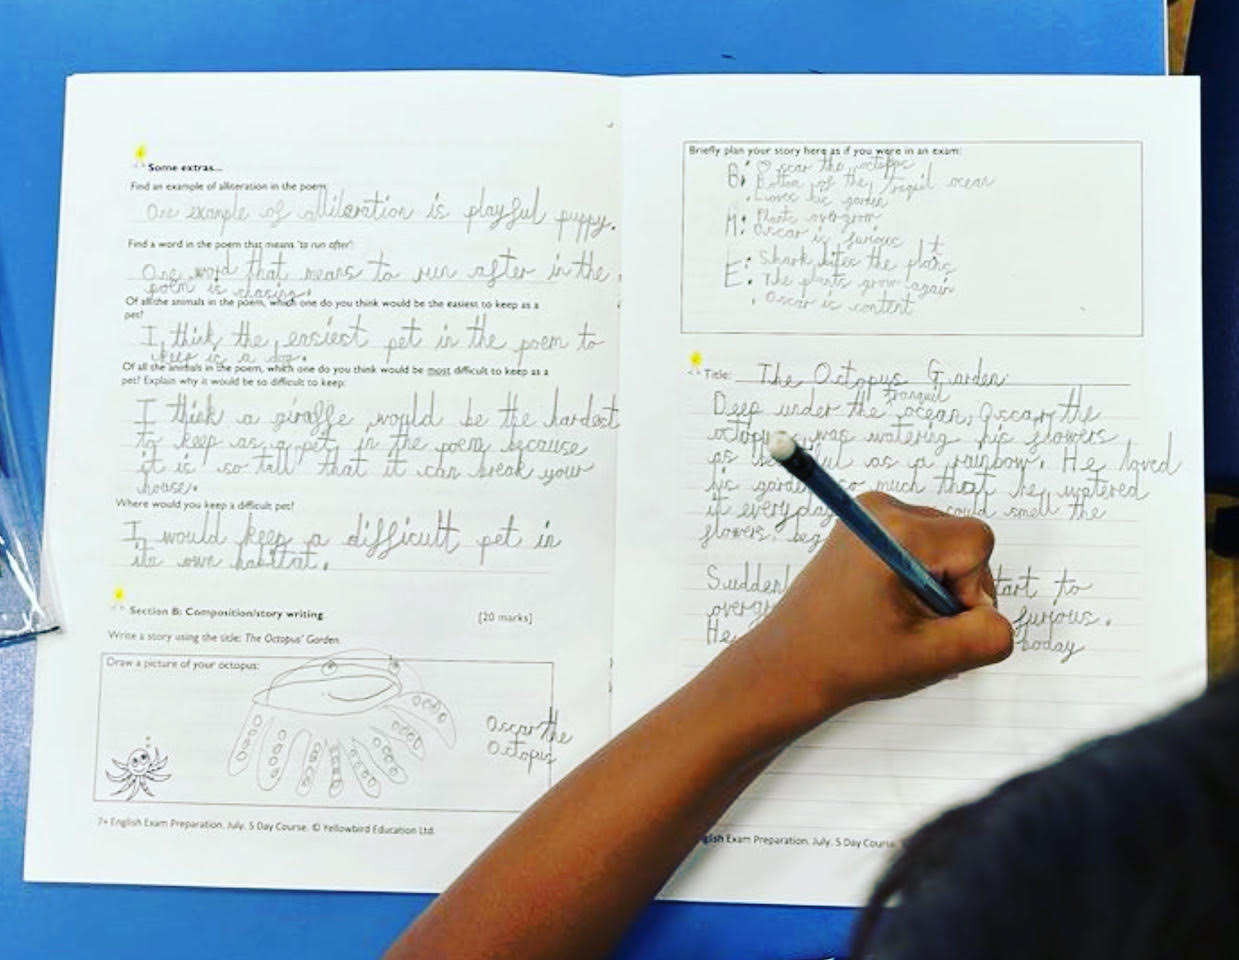 Some extras...
Find an example of alliteration in the poem:
One example of alliteration is playful puppy.
Find a word in the poem that means 'to run after':
One word that means to run after in the
poem is chasing.
Of all the animals in the poem, which one do you think would be the easiest to keep as a
pet?
I think the easiest pet in the poem to
keep is a dog.
Of all the animals in the poem, which one do you think would be most difficult to keep as a
pet? Explain why it would be so difficult to keep:
I think a giraffe would be the hardest
to keep as a pet in the poem because
it is so tall that it can break your
house.
Where would you keep a difficult pet?
I would keep a difficult pet in
its own habitat.
Section B: Composition/story writing [20 marks]
Write a story using the title: The Octopus' Garden.
Draw a picture of your octopus:
Oscar the
Octopus
7+ English Exam Preparation. July. 5 Day Course. © Yellowbird Education Ltd.
Briefly plan your story here as if you were in an exam:
B: Oscar the octopus
Bottom of the traquil ocean
Loves his garden
M: Plants overgrow
Oscar is furious
E: Shark bites the plants
The plants grow again
Oscar is content
Title: The Octopus Garden
tranquil
Deep under the ocean, Oscar, the
octopus, was watering his flowers
as as a rainbow. He loved
his garden so much that he watered
it everyday could smell the
flowers.
Sudden tart to
furious.
He today
glish Exam Preparation. July. 5 Day Course.